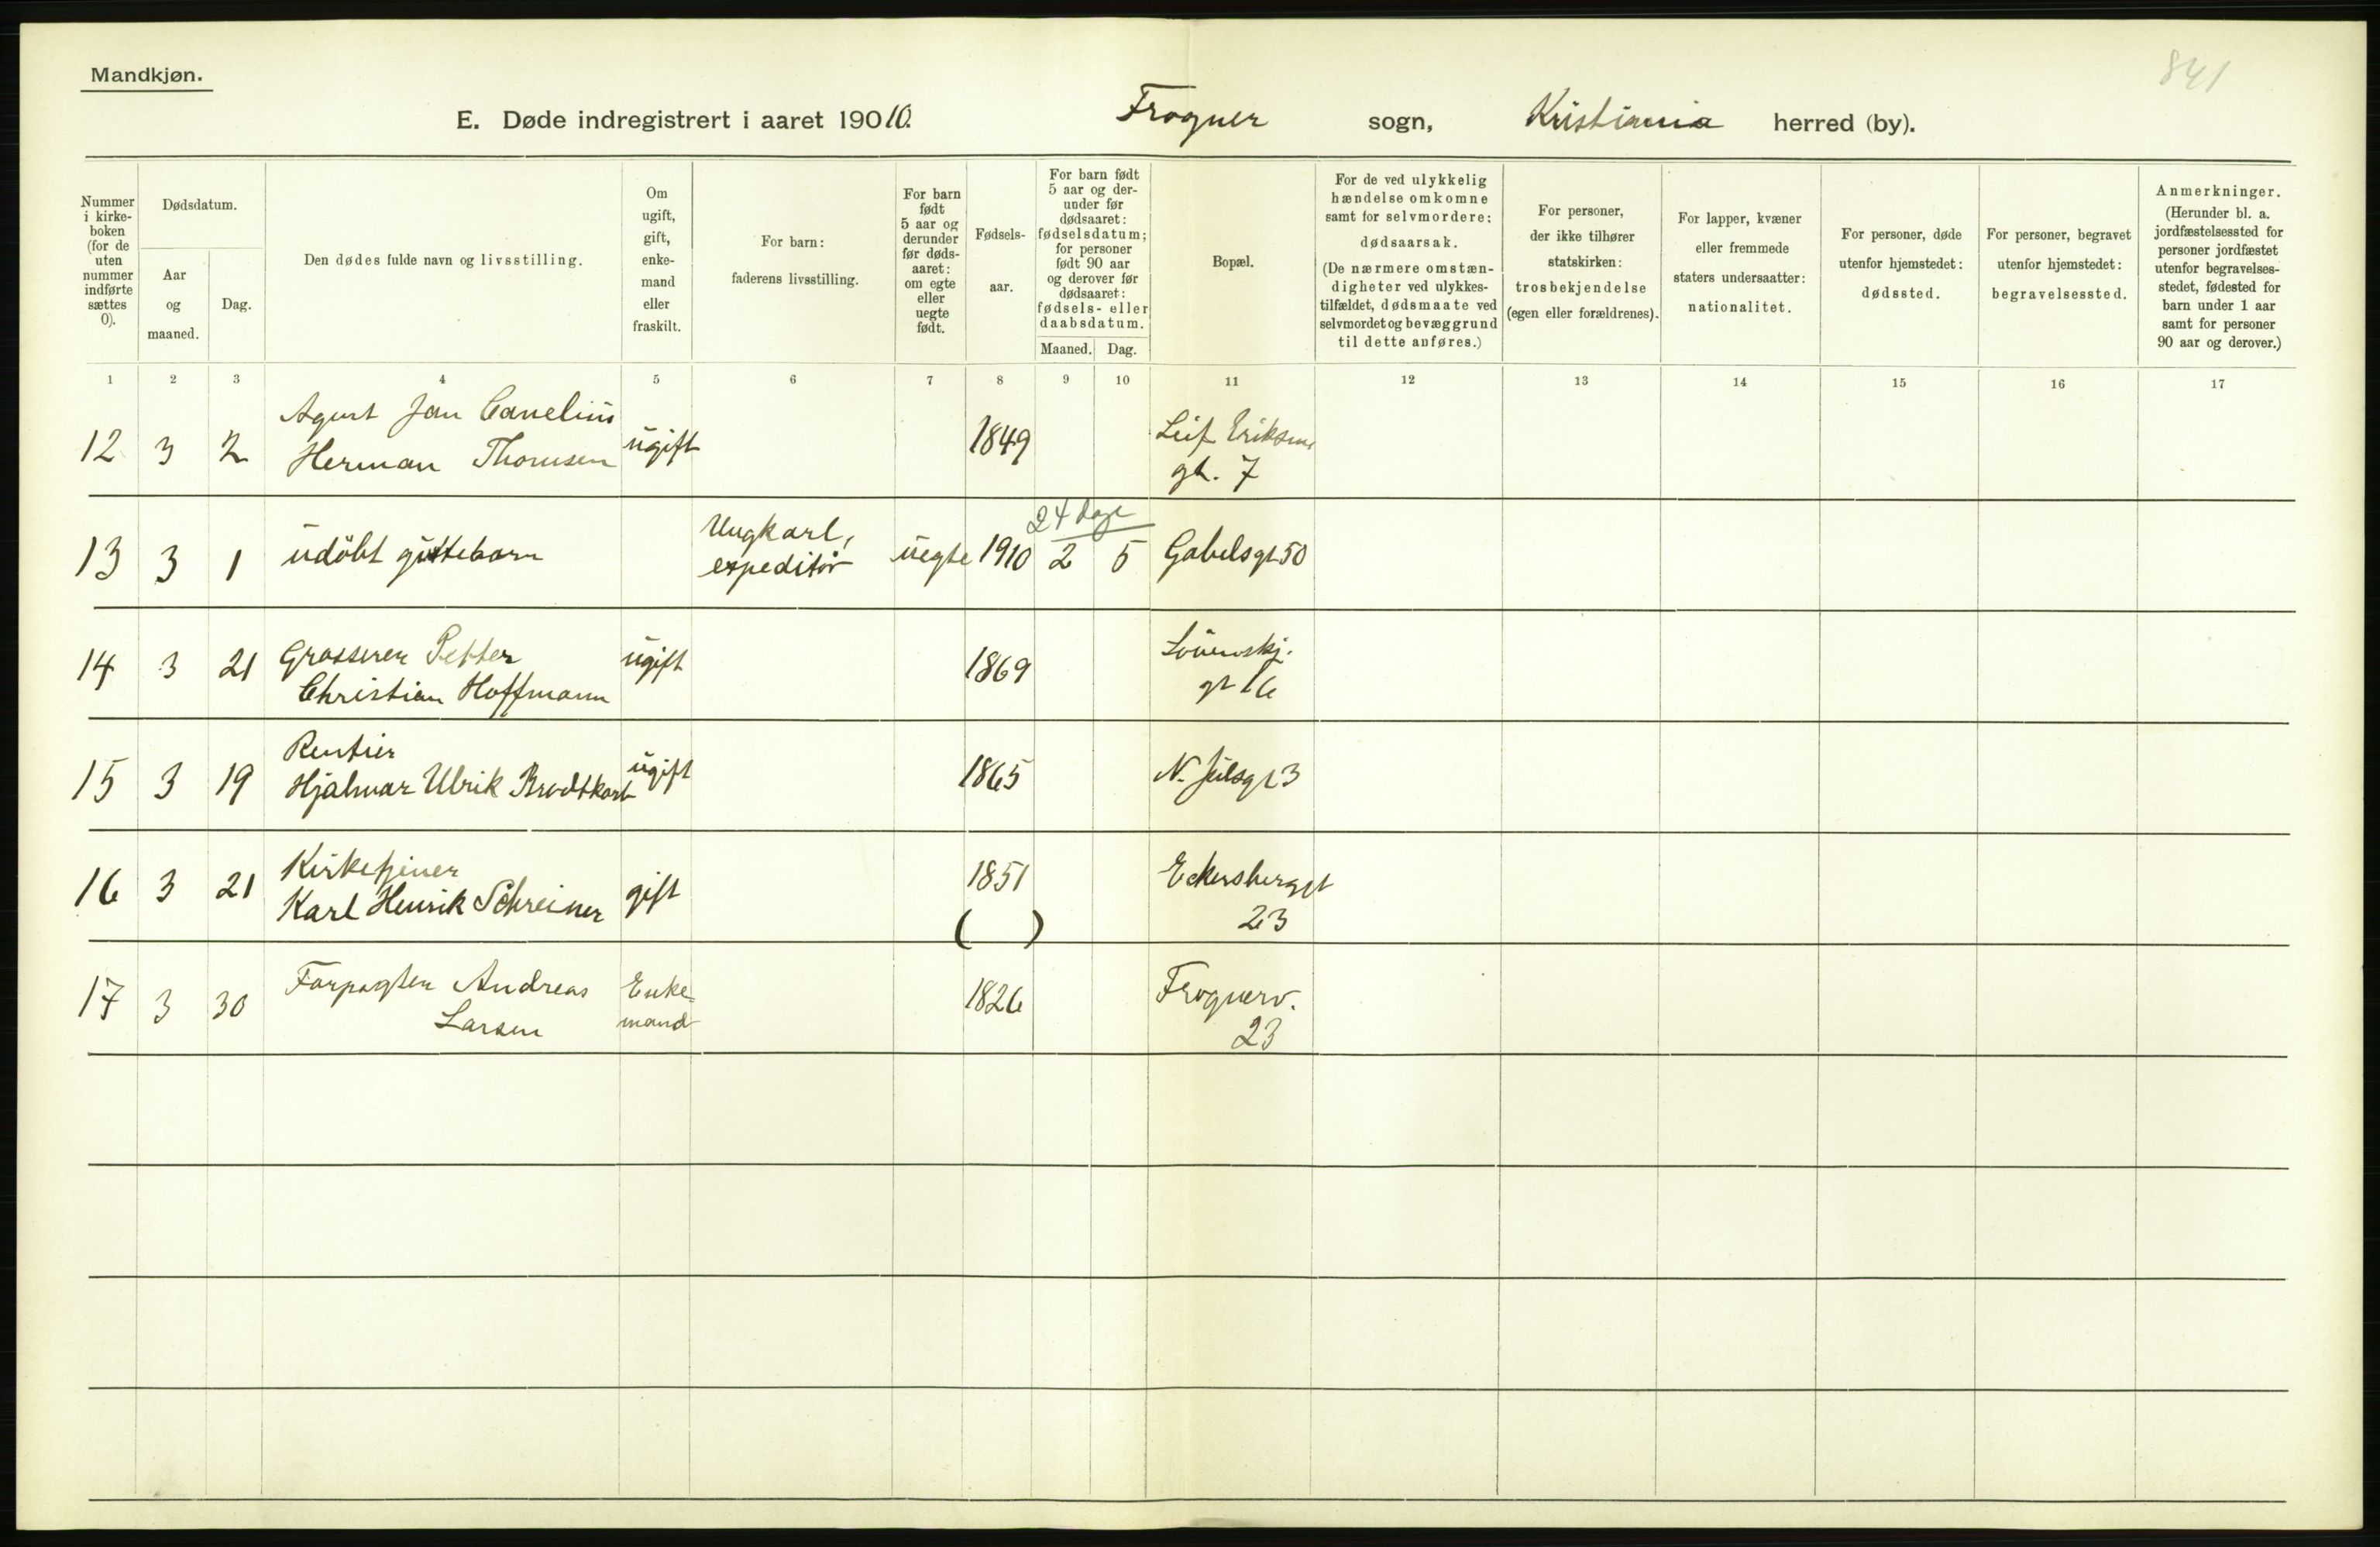 Mandkjøn.
841
E. Døde indregistrert i aaret 1910. Frogner sogn, Kristiania herred (by).
Nummer i kirke-boken (for de uten nummer indførte sættes 0).
Dødsdatum.
Aar og maaned.
Dag.
Den dødes fulde navn og livsstilling.
Om ugift, gift, enke-mand eller fraskilt.
For barn: faderens livsstilling.
For barn født 5 aar og derunder før døds-aaret: om egte eller uegte født.
Fødsels-aar.
For barn født 5 aar og der-under før dødsaaret: fødselsdatum; for personer født 90 aar og derover før dødsaaret: fødsels- eller daabsdatum.
Maaned. Dag.
Bopæl.
For de ved ulykkelig hændelse omkomne samt for selvmordere: dødsaarsak. (De nærmere omstæn-digheter ved ulykkes-tilfældet, dødsmaate ved selvmordet og bevæggrund til dette anføres.)
For personer, der ikke tilhører statskirken: trosbekjendelse (egen eller forældrenes).
For lapper, kvæner eller fremmede staters undersaatter: nationalitet.
For personer, døde utenfor hjemstedet: dødssted.
For personer, begravet utenfor hjemstedet: begravelsessted.
Anmerkninger. (Herunder bl. a. jordfæstelsessted for personer jordfæstet utenfor begravelses-stedet, fødested for barn under 1 aar samt for personer 90 aar og derover.)
1 2 3 4 5 6 7 8 9 10 11 12 13 14 15 16 17
Agust Jan Canelius
12 3 2 Herman Thomsen ugift 1849 Leif Eriksens
gt. 7
24 dage
13 3 1 udöbt guttebarn Ungkarl, expeditör uegte 1910 2 5 Gabelsgt 50
14 3 21 Grosserer Petter ugift 1869 Lövenskj.
Christian Hoffmann gt 16
Rentier
15 3 19 Hjalmar Ulrik Brodtkorb ugift 1865 N. Julsgt 3
Kirketjener 1851 Eckersbergst
16 3 21 Karl Henrik Schreiner gift ( ) 23
17 3 30 Forpagter Andreas Enke= 1826 Frognerv.
Larsen mand 23